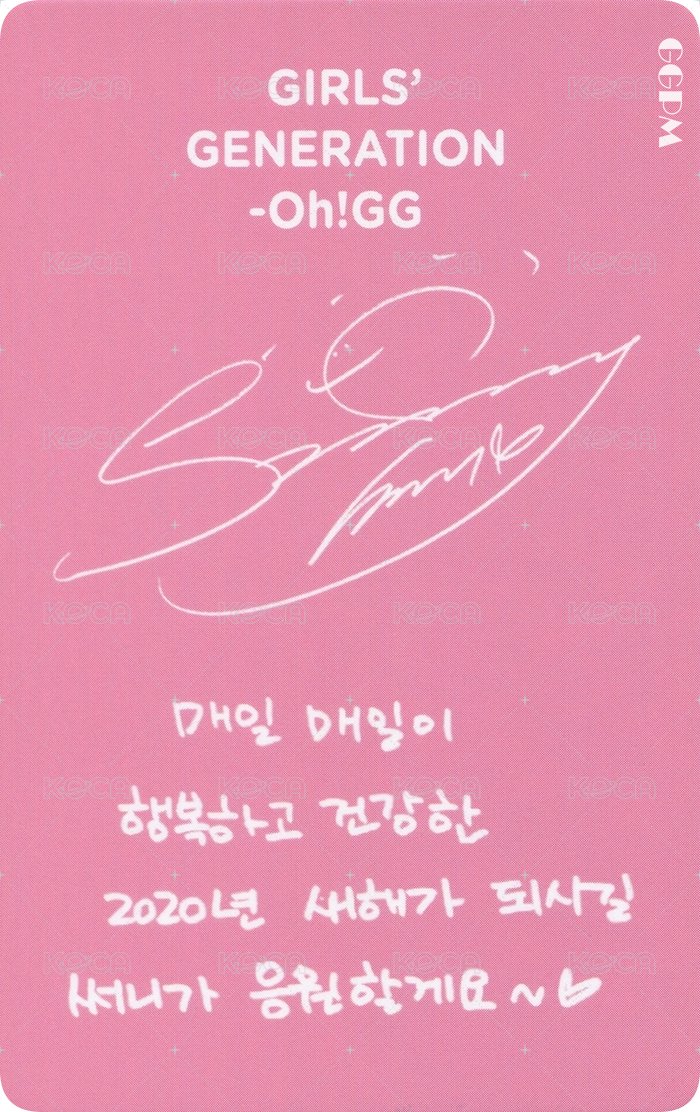 GIRLS'
GENERATION
-Oh!GG
GGPM
Sunny
매일 매일이
행복하고 건강한
2020년 새해가 되시길
써니가 응원할게요~♡
KOCA